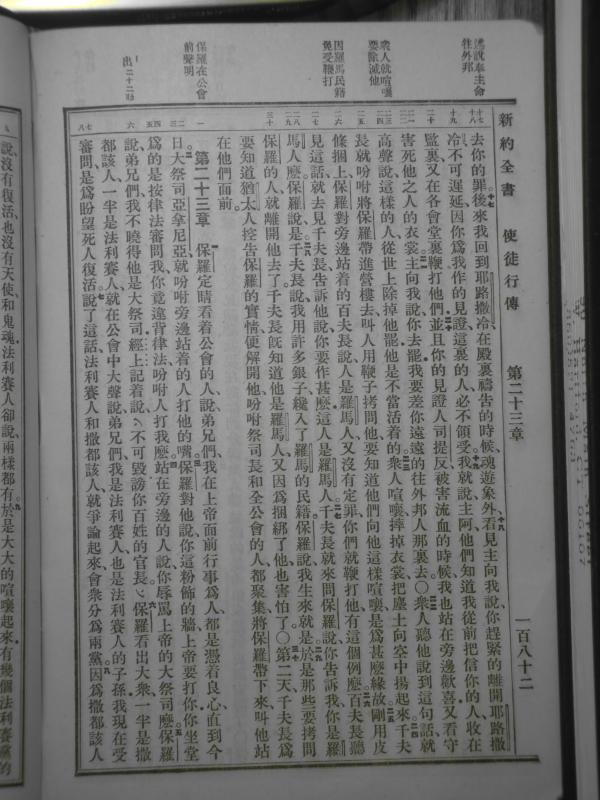 新約全書 使徒行傳 第二十三章 一百八十二
說奉主命
往外邦
衆人就喧嚷
要除滅他
因羅馬民籍
免受鞭打
保羅在公會
前聲明
去你的罪後來我回到耶路撒冷在殿裏禱告的時候魂遊象外看見主向我說你趕緊的離開耶路撒
冷不可遲延因你爲我作的見證這裏的人必不領受我就說主阿他們知道我從前把信你的人收在
監裏又在各會堂裏鞭打他們並且你的見證人司提反被害流血的時候我也站在旁邊歡喜又看守
害死他之人的衣裳主向我說你去罷我要差你遠遠的往外邦人那裏去○衆人聽他說到這句話就
高聲說這樣的人從世上除掉他罷他是不當活着的衆人喧嚷摔掉衣裳把塵土向空中揚起來千夫
長就吩咐將保羅帶進營樓去叫人用鞭子拷問他要知道他們向他這樣喧嚷是爲甚麽緣故剛用皮
條捆上保羅對旁邊站着的百夫長說人是羅馬人又沒有定罪你們就鞭打他有這個例麽百夫長聽
見這話就去見千夫長告訴他說你要作甚麽這人是羅馬人千夫長就來問保羅說你告訴我你是羅
馬人麽保羅說是千夫長說我用許多銀子纔入了羅馬的民籍保羅說我生來就是於是那些要拷問
保羅的人就離開他去了千夫長旣知道他是羅馬人又因爲捆綁了他也害怕了○第二天千夫長爲
要知道猶太人控告保羅的實情便解開他吩咐祭司長和全公會的人都聚集將保羅帶下來叫他站
在他們面前
第二十三章 保羅定睛看着公會的人說弟兄們我在上帝面前行事爲人都是憑着良心直到今
日大祭司亞拿尼亞就吩咐旁邊站着的人打他的嘴保羅對他說你這粉飾的牆上帝要打你你坐堂
爲的是按律法審問我你竟違背律法吩咐人打我麽站在旁邊的人說你辱罵上帝的大祭司麽保羅
說弟兄們我不曉得他是大祭司經上記着說不可毀謗你百姓的官長保羅看出大衆一半是撒
都該人一半是法利賽人就在公會中大聲說弟兄們我是法利賽人也是法利賽人的子孫我現在受
審問是爲盼望死人復活說了這話法利賽人和撒都該人就爭論起來會衆分爲兩黨因爲撒都該人
說沒有復活也沒有天使和鬼魂法利賽人卻說兩樣都有於是大大的喧嚷起來有幾個法利賽黨的